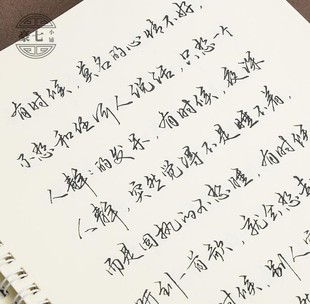 柒七
小铺
有时候，莫名的心情不好，
不想和任何人说话，只想一个
人静静的发呆，有时候，夜深
人静，突然觉得不是睡不着，
而是固执的不想睡，有时候
听到一首歌，就会想
时候，别人